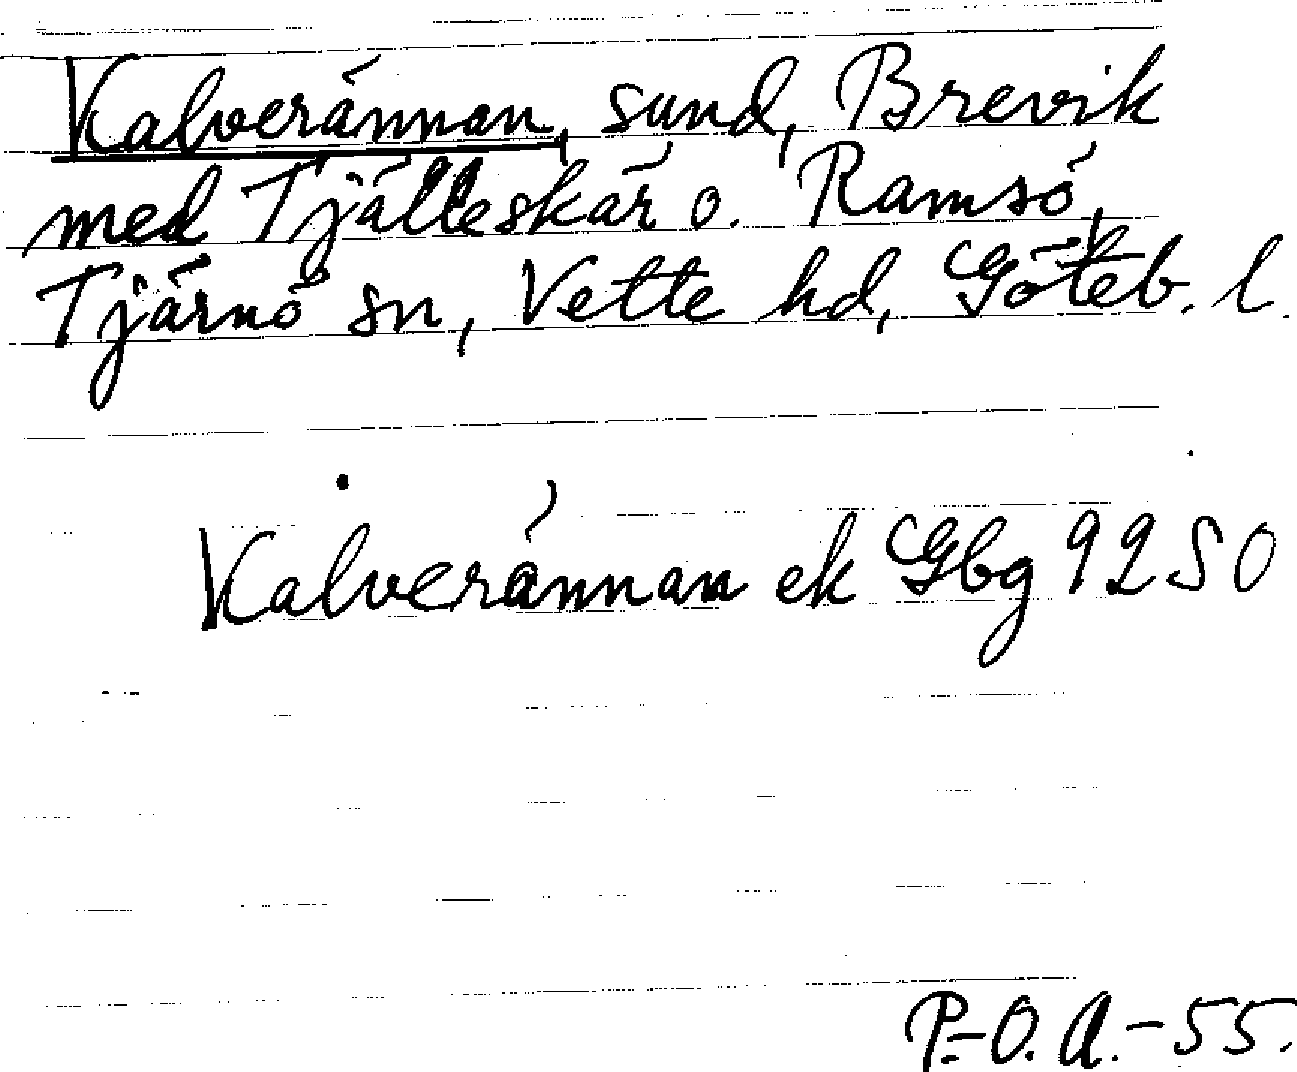 Kalverännan, sund, Brevik
med Tjälleskär o. Ramsö,
Tjärnö sn, Vette hd, Göteb. l.
Kalverännan ek Gbg 9250
P.-O. A. -55.